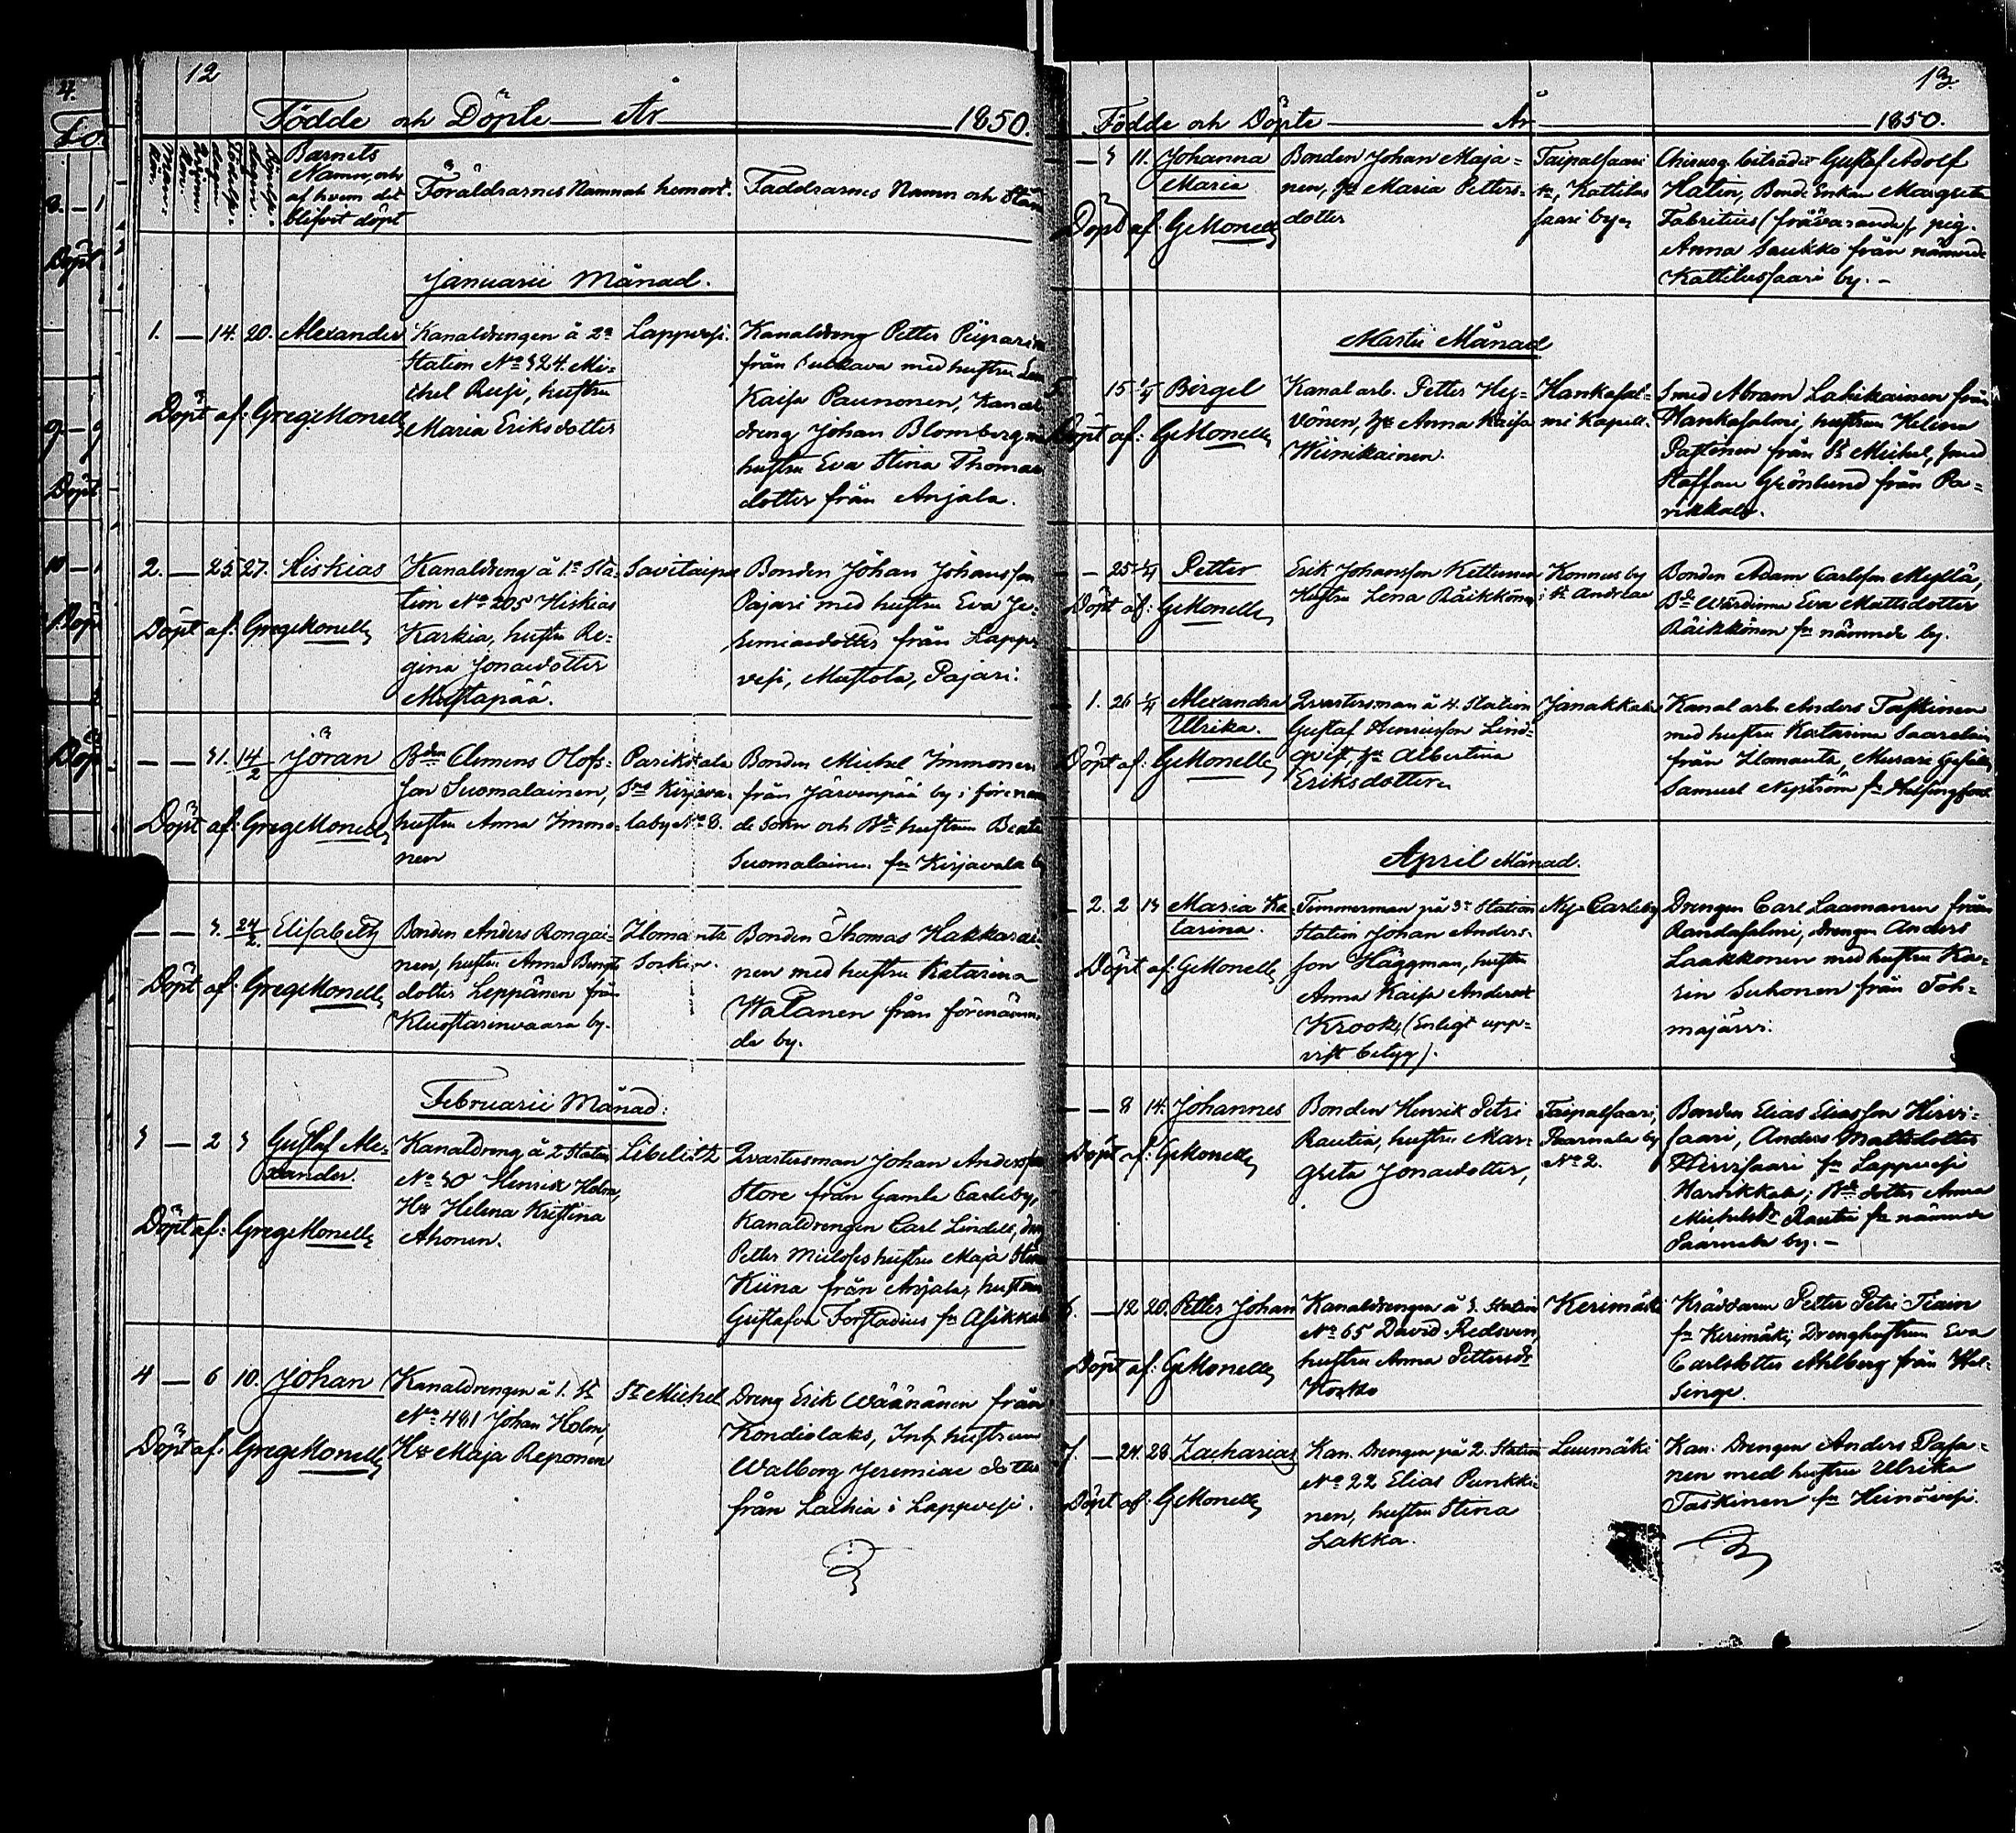 12
Födde och Döpte År 1850.
Barnets
Namn, och
af hvem det
blifvit döpt
Föräldrarnes Namn och hemort.
Faddrarnes Namn och
Januarii Månad.
1. — 14. 20. Alexander
Döpt af: GregeMonell
Kanaldrengen å 2a
Station No 324. Mi-
chel Rusi, hustru
Maria Eriksdotter
Lappvesi.
Kanaldreng Petter
från med hustru
Kaisa Paunonen, Kanal
dreng Johan Blomberg
hustru Eva Stina Thomas
dotter från Anjala.
2. — 25. 27. Hiskias
Döpt af: GregeMonell
Kanaldreng å 1a Sta-
tion No 205 Hiskias
Karkia, hustru Re-
gina Jonaedotter
Mustapää.
Savitaipal
Bonden Johan Johansson
Pajari med hustru Eva Je-
remiaedotter från Lapp-
vesi, Mustola, Pajari.
— — 31. 14/2 Jöran
Döpt af: GregeMonell
Bden Clemens Olofs-
son Suomalainen,
hustru Anna Immo-
nen
Parikkala
Kirjava-
laby No 8.
Bonden Michel Immonen
från Järvenpää by i förenam
de Sokn och Bde hustrun Beata
Suomalainen fn Kirjavala
— — 3. 24/2. Elisabeth
Döpt af: GregeMonell
Bonden Anders Rongai-
nen, hustru Anna Bengts
dotter Leppänen från
by.
Ilomants
Sockn.
Bonden Thomas Hakkarai-
nen med hustru Katarina
Watanen från förenämn
da by.
Februarii Månad:
3 — 2 3 Gustaf Ale-
xander.
Döpt af: GregeMonell
Kanaldreng å 2 Station
No 30 Henrik Holm,
Hu Helena Kristina
Ahonen.
Libelitz
Qvartersman Johan Andersson
Store från Gamla Carleby,
Kanaldrengen Carl Lindell,
Petter hustru Maja
Kiina från Anjala, hustrun
Gustafva Forstadius fn Asikkala
4 — 6 10. Johan
Döpt af: GregeMonell
Kanaldrengen å 1. St
No 481 Johan Holm,
Hu Maja Reponen
St Michel
Dreng Erik Wäänänen från
Kondiolaks, Inh. hustrun
Walborg Jeremiae dotter
från Laihia i Lappvesi.
13.
Födde och Döpte År 1850.
— 3 11. Johanna
Maria
Döpt af: GeMonell
Bonden Johan Maja-
nen, hu Maria Petters-
dotter
Taipalsaari
Kattilus
saari by
Chirurg. biträdet Gustaf Adolf
Hatin, Bonde Enkan Margreta
Fabritius (frånvarande), pig.
Anna Saukko från nämnde
Kattilussaari by. —
Martii Månad
5. 15 1/4 Birget
Döpt af: GeMonell
Kanal arb. Petter Hey-
vönen, hu Anna Kaisa
Wiinikainen.
Hankasal-
mi Kapell.
Smed Abram Lahikainen från
Hankasalmi, hustrun Helena
Pastinen från St Michel, smed
Staffan Grönlund från Pa-
rikkala.
— 25 1/4 Petter
Döpt af: GeMonell
Erik Johansson Kettunen
Hustru Lena Räikkönen
Konnus by
i St Andreae
Bonden Adam Carlsson Myllä,
Bde Wärdinnan Eva Mattsdotter
Räikkönen fn nämnde by.
1. 26 1/4 Alexandra
Ulrika.
Döpt af: GeMonell
Qvartersman å 4. Station
Gustaf Henricsson Lind-
qvist, hu Albertina
Eriksdotter
Janakkala
Kanal arb. Anders Taskinen
med hustru Katarina Saarelain
från Ilomants, Murare Gesälln
Samuel Nyström fn Helsingfors.
April Månad.
— 2. 2 13 Maria Ka-
tarina.
Döpt af: GeMonell
Timmerman på 3e Station
Station Johan Anders-
son Häggman, hustru
Anna Kaisa Andersdr
Krook, (Enligt upp-
vist betyg).
Ny-Carleby
Drengen Carl Laamanen från
Randasalmi, drengen Anders
Laakkonen med hustru Ka-
rin Suhonen från Toh-
majärvi.
— — 8 14. Johannes
Döpt af: GeMonell
Bonden Henrik Petri
Rautia, hustru Mar-
greta Jonaedotter,
Taipalsaari,
Paarmala by
No 2.
Bonden Elias Eliasson Hirvi-
saari, Anders Mattsdotter
Hirvisaari fn Lappvesi
Harvikkala; Bde dotter Anna
Michelsdr Rautia fn nämnde
Paarmala by. —
6. — 12 20. Petter Johan
Döpt af: GeMonell
Kanaldrengen å 3. Station
No 65 David Redsven,
hustru Anna Pettersdr
Kosko
Kerimäki
Skräddaren Petter Petri Tiain
fn Kerimäki, Drenghustrun Eva
Carlsdotter Ahlberg från Hel-
singe.
7. — 24. 28. Zacharias
Döpt af: GeMonell
Kan. Drengen på 2. Station
No 22 Elias Punkki-
nen, hustru Stina
Lakka.
Luumäki
Kan. Drengen Anders Pasa-
nen med hustru Ulrika
Taskinen fn Heinävesi.